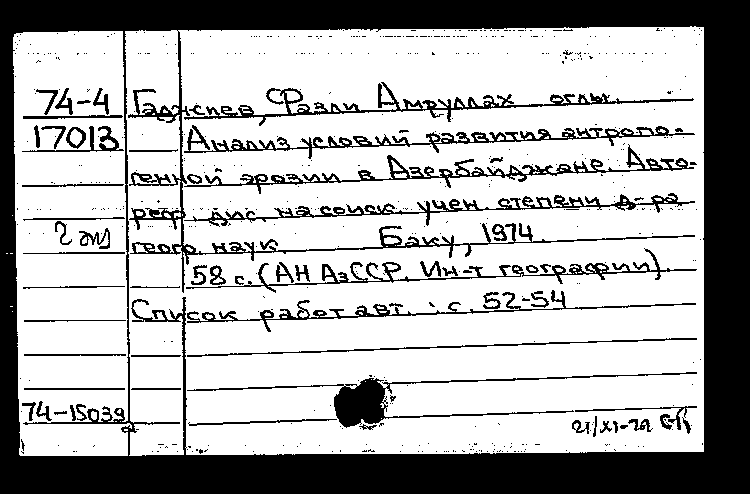 74-4 Гаджиев, Фазли Амруллах оглы.
17013 Анализ условий развития антропо-
генной эрозии в Азербайджане. Авто-
реф. дис. на соиск. учен. степени д-ра
2 экз геогр. наук. Баку, 1974.
58 с. (АН АзССР. Ин-т географии).
Список работ авт.: с. 52-54
74-15039